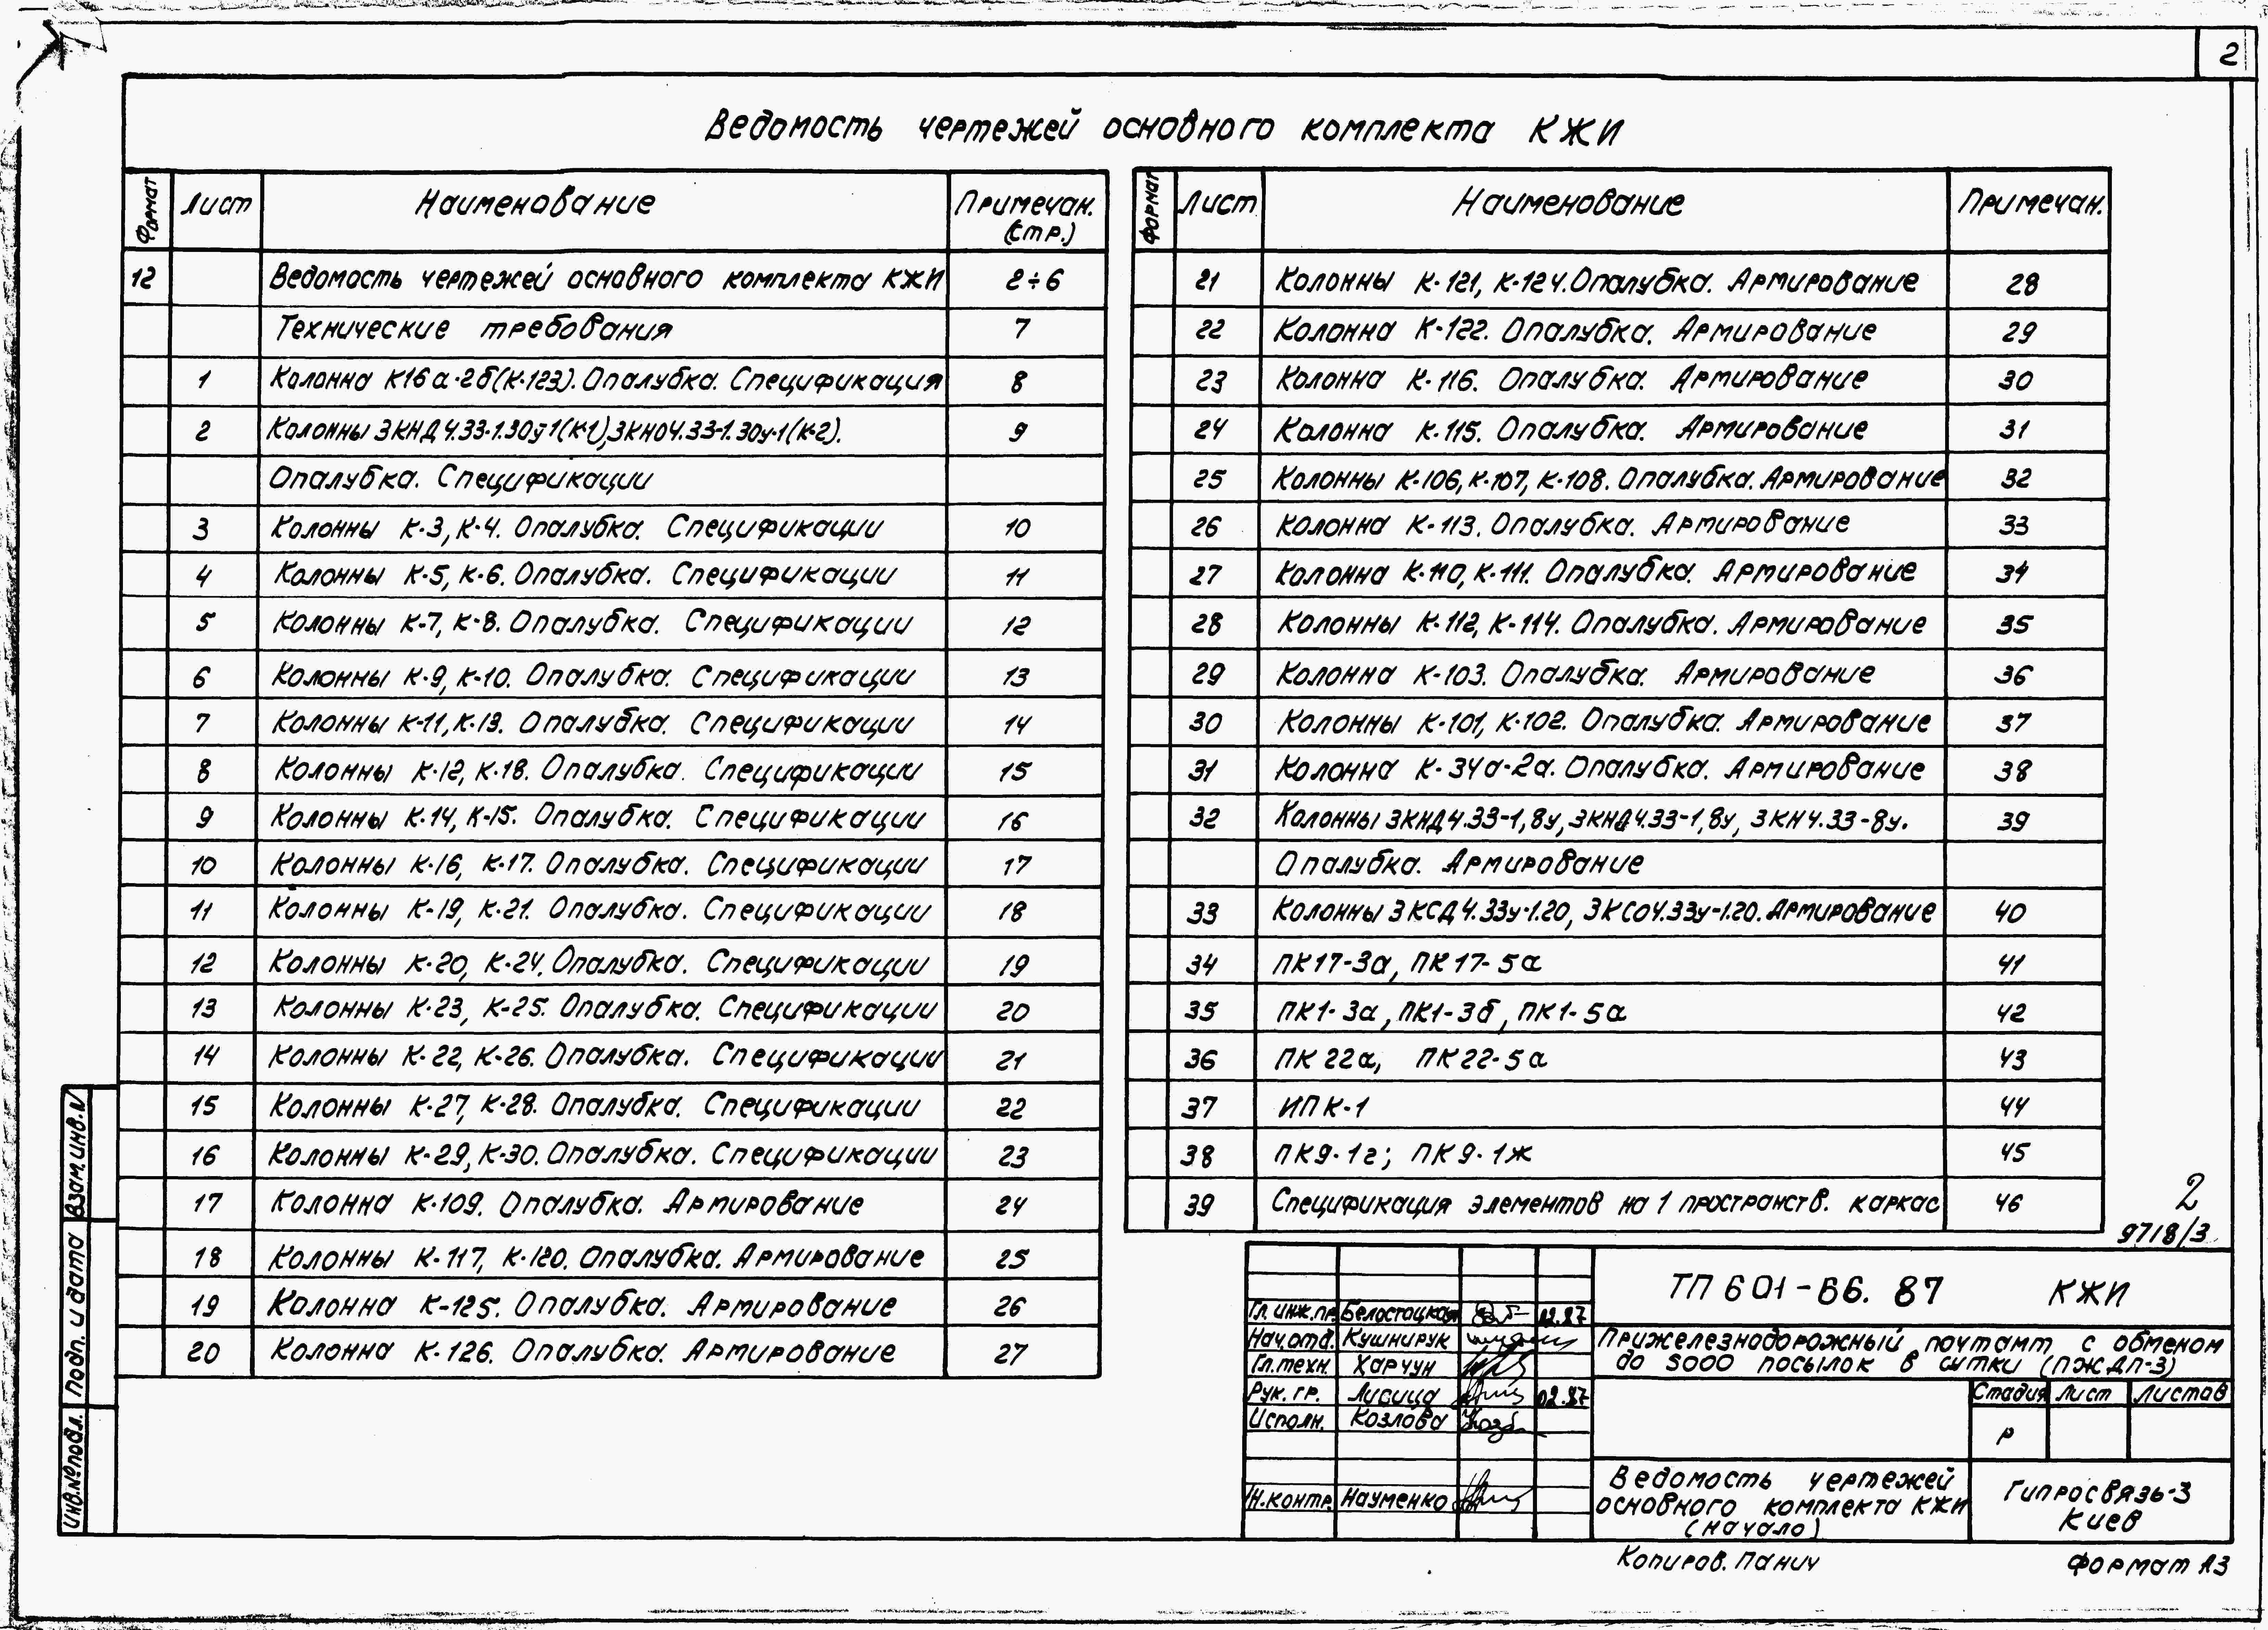 2
Ведомость чертежей основного комплекта КЖИ
Формат Лист Наименование Примечан. (стр.)
12 Ведомость чертежей основного комплекта КЖИ 2÷6
Технические требования 7
1 Колонна К16а-2б(К-123). Опалубка. Спецификация 8
2 Колонны 3КНД4.33-1.30у-1(К-1), 3КНО4.33-1.30у-1(К-2). 9
Опалубка. Спецификации
3 Колонны К-3, К-4. Опалубка. Спецификации 10
4 Колонны К-5, К-6. Опалубка. Спецификации 11
5 Колонны К-7, К-8. Опалубка. Спецификации 12
6 Колонны К-9, К-10. Опалубка. Спецификации 13
7 Колонны К-11, К-13. Опалубка. Спецификации 14
8 Колонны К-12, К-18. Опалубка. Спецификации 15
9 Колонны К-14, К-15. Опалубка. Спецификации 16
10 Колонны К-16, К-17. Опалубка. Спецификации 17
11 Колонны К-19, К-21. Опалубка. Спецификации 18
12 Колонны К-20, К-24. Опалубка. Спецификации 19
13 Колонны К-23, К-25. Опалубка. Спецификации 20
14 Колонны К-22, К-26. Опалубка. Спецификации 21
15 Колонны К-27, К-28. Опалубка. Спецификации 22
16 Колонны К-29, К-30. Опалубка. Спецификации 23
17 Колонна К-109. Опалубка. Армирование 24
18 Колонны К-117, К-120. Опалубка. Армирование 25
19 Колонна К-125. Опалубка. Армирование 26
20 Колонна К-126. Опалубка. Армирование 27
Формат Лист Наименование Примечан.
21 Колонны К-121, К-124. Опалубка. Армирование 28
22 Колонна К-122. Опалубка. Армирование 29
23 Колонна К-116. Опалубка. Армирование 30
24 Колонна К-115. Опалубка. Армирование 31
25 Колонны К-106, К-107, К-108. Опалубка. Армирование 32
26 Колонна К-113. Опалубка. Армирование 33
27 Колонна К-110, К-111. Опалубка. Армирование 34
28 Колонны К-112, К-114. Опалубка. Армирование 35
29 Колонна К-103. Опалубка. Армирование 36
30 Колонны К-101, К-102. Опалубка. Армирование 37
31 Колонна К-34а-2а. Опалубка. Армирование 38
32 Колонны 3КНД4.33-1,8у, 3КНД4.33-1,8у, 3КН4.33-8у. 39
Опалубка. Армирование
33 Колонны 3КСД4.33у-1.20, 3КСО4.33у-1.20. Армирование 40
34 ПК17-3а, ПК17-5а 41
35 ПК1-3а, ПК1-3б, ПК1-5а 42
36 ПК22а, ПК22-5а 43
37 ИПК-1 44
38 ПК9-1г; ПК9-1ж 45
39 Спецификация элементов на 1 пространств. каркас 46
2
9718/3
ТП 601-66.87 КЖИ
Гл. инж. пр. Белостоцкая 02.87
Нач. отд. Кушнирук
Гл. техн. Харчун
Рук. гр. Лисица 02.87
Исполн. Козлова
Н. контр. Науменко
Прижелезнодорожный почтамт с обменом
до 5000 посылок в сутки (ПЖДП-3)
Стадия Лист Листов
Р
Ведомость чертежей
основного комплекта КЖИ
(начало)
Гипросвязь-3
Киев
Копиров. Панич Формат А3
Взам. инв. №
Подп. и дата
Инв. № подл.